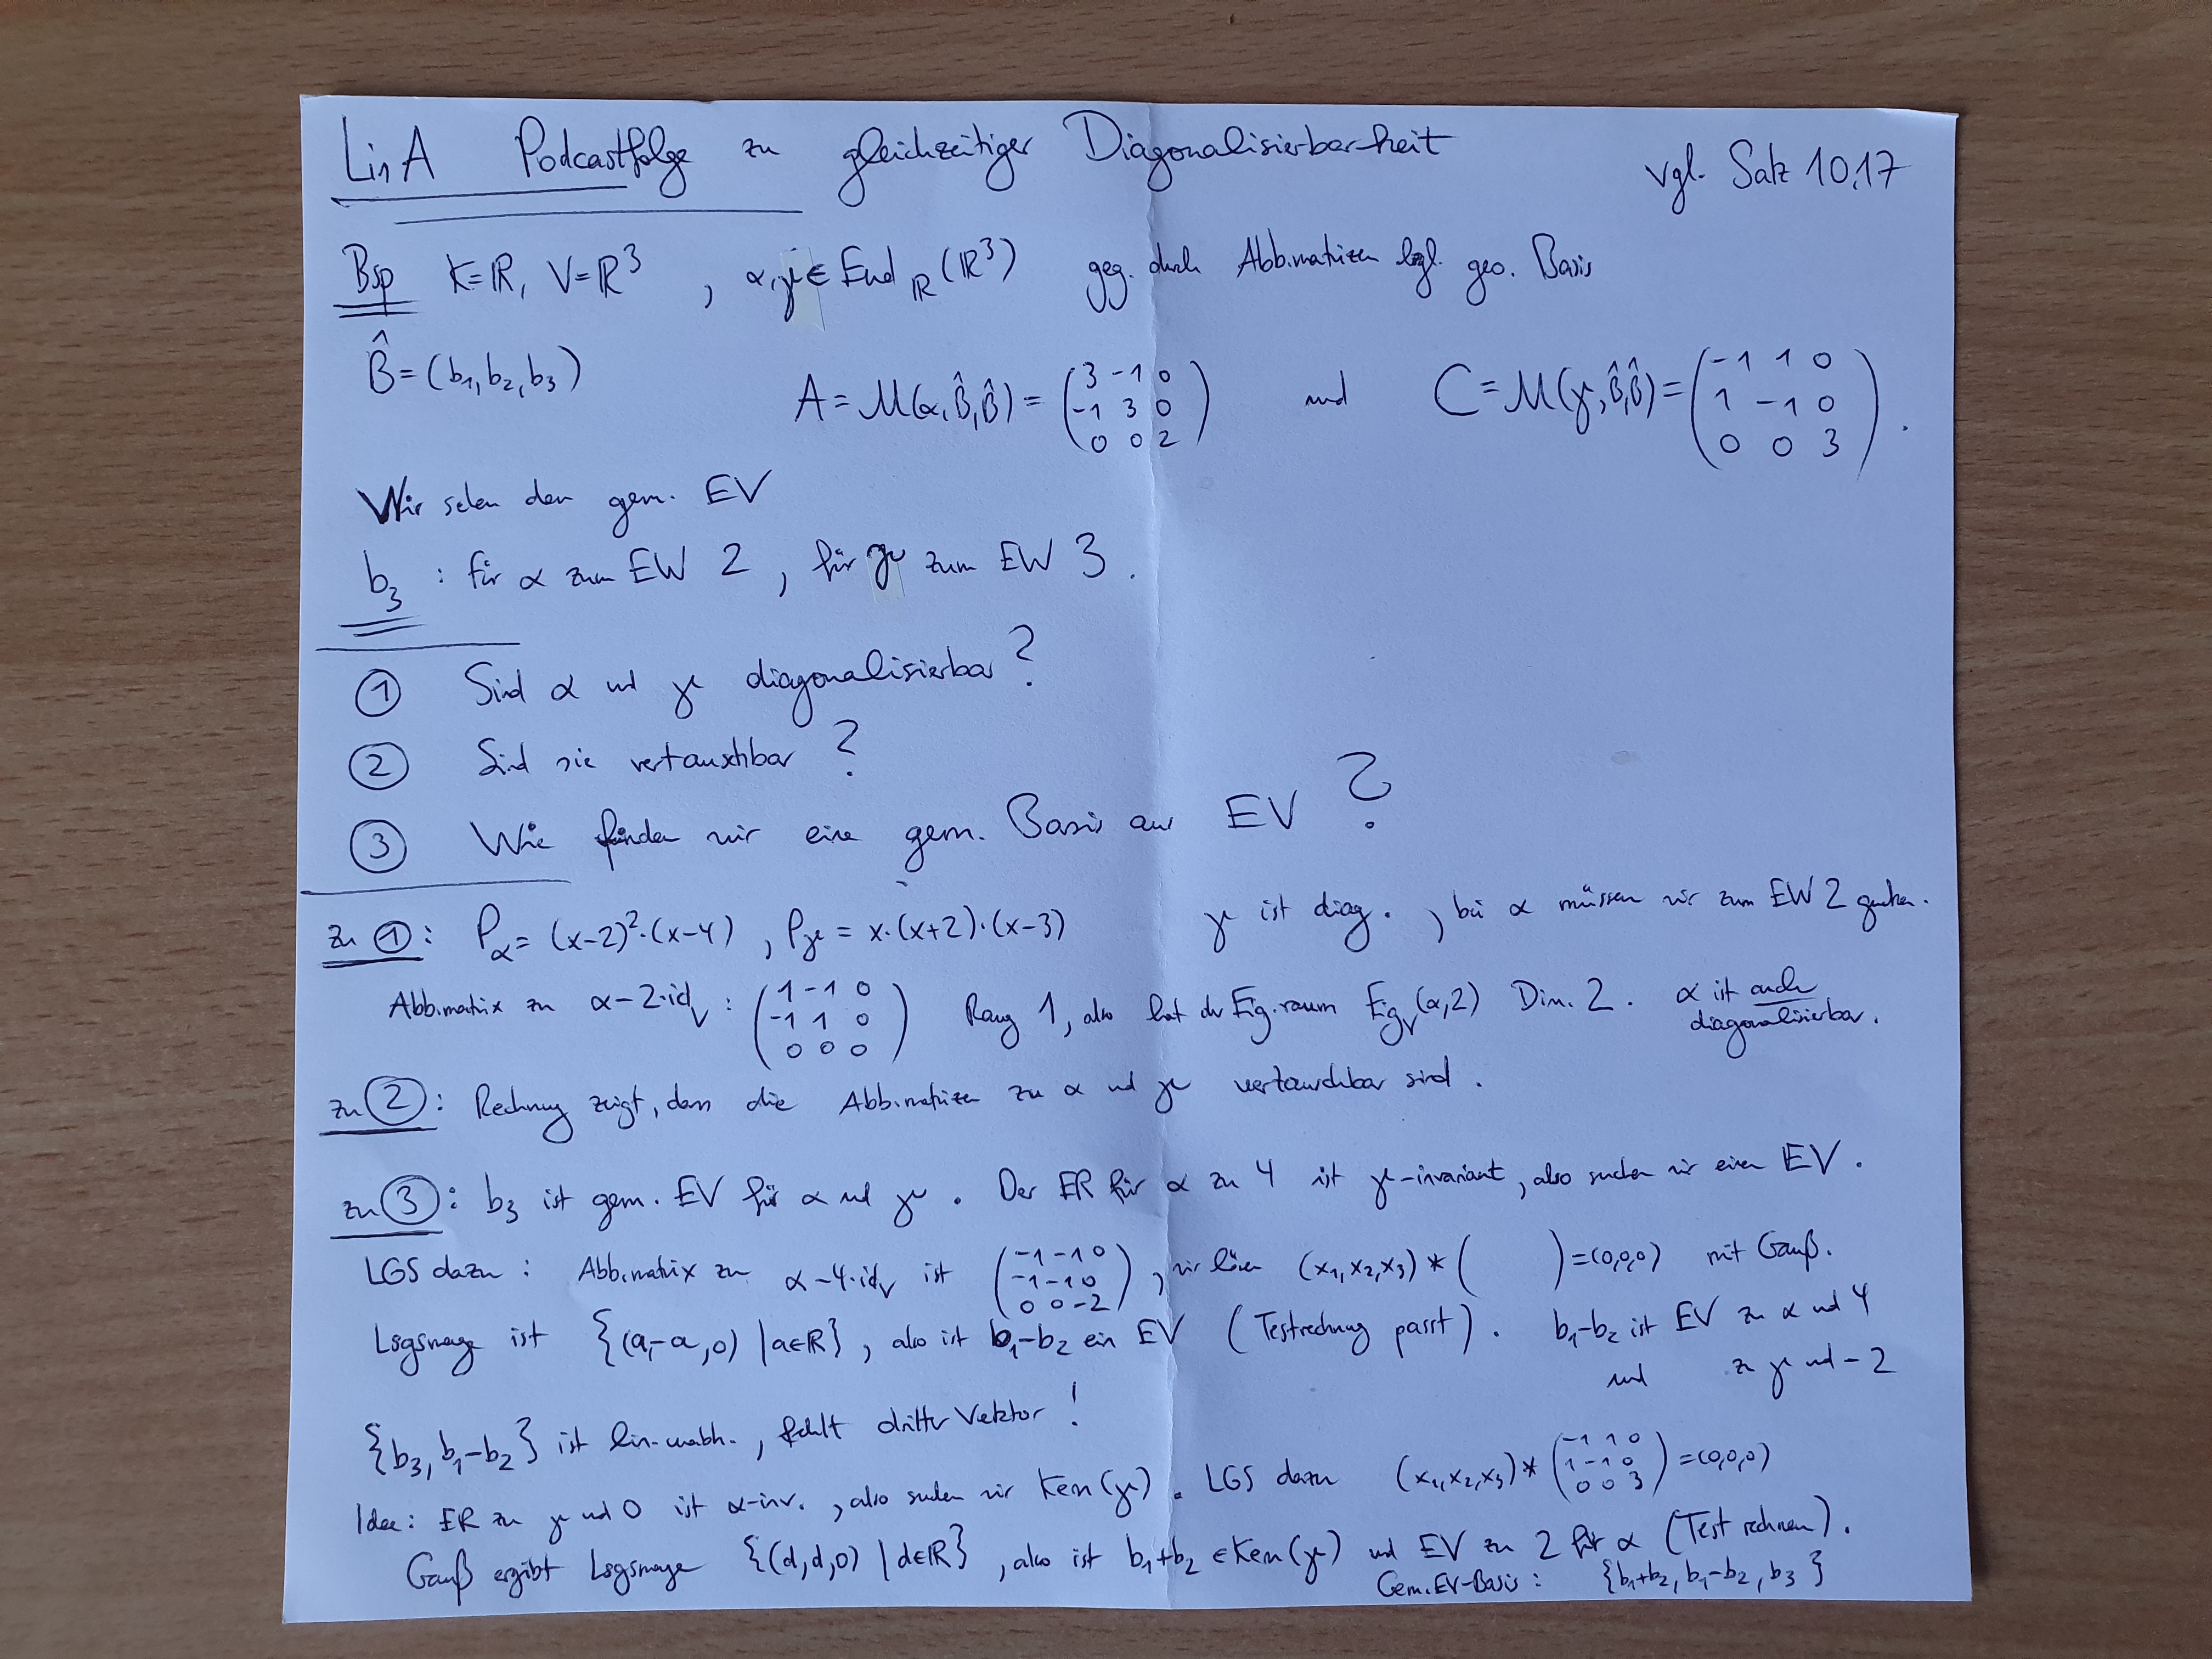 LinA Podcastfolge zu gleichzeitiger Diagonalisierbarkeit vgl. Satz 10.17
Bsp K=ℝ, V=ℝ³, α,γ ∈ End_ℝ(ℝ³) geg. durch Abb.matrizen bzgl. geo. Basis
B̂=(b₁,b₂,b₃) A = M(α,B̂,B̂) = (3 -1 0 / -1 3 0 / 0 0 2) und C = M(γ,B̂,B̂) = (-1 1 0 / 1 -1 0 / 0 0 3).
Wir sehen den gem. EV
b₃ : für α zum EW 2, für γ zum EW 3.
① Sind α und γ diagonalisierbar?
② Sind sie vertauschbar?
③ Wie finden wir eine gem. Basis aus EV?
zu ①: P_α = (x-2)²·(x-4), P_γ = x·(x+2)·(x-3) γ ist diag., bei α müssen wir zum EW 2 gucken.
Abb.matrix zu α-2·id_V : (1 -1 0 / -1 1 0 / 0 0 0) Rang 1, also hat der Eig.raum Eig_V(α,2) Dim. 2. α ist auch diagonalisierbar.
zu ②: Rechnung zeigt, dass die Abb.matrizen zu α und γ vertauschbar sind.
zu ③: b₃ ist gem. EV für α und γ. Der ER für α zu 4 ist γ-invariant, also suchen wir einen EV.
LGS dazu: Abb.matrix zu α-4·id_V ist (-1 -1 0 / -1 -1 0 / 0 0 -2), wir lösen (x₁,x₂,x₃)*( )=(0,0,0) mit Gauß.
Lsgsmenge ist {(a,-a,0) | a∈ℝ}, also ist b₁-b₂ ein EV (Testrechnung passt). b₁-b₂ ist EV zu α und 4
und zu γ und -2
{b₃, b₁-b₂} ist lin. unabh., fehlt dritter Vektor!
Idee: ER zu γ und 0 ist α-inv., also suchen wir Kern(γ). LGS dazu (x₁,x₂,x₃)*(-1 1 0 / 1 -1 0 / 0 0 3)=(0,0,0)
Gauß ergibt Lsgsmenge {(d,d,0) | d∈ℝ}, also ist b₁+b₂ ∈ Kern(γ) und EV zu 2 für α (Test rechnen).
Gem. EV-Basis: {b₁+b₂, b₁-b₂, b₃}